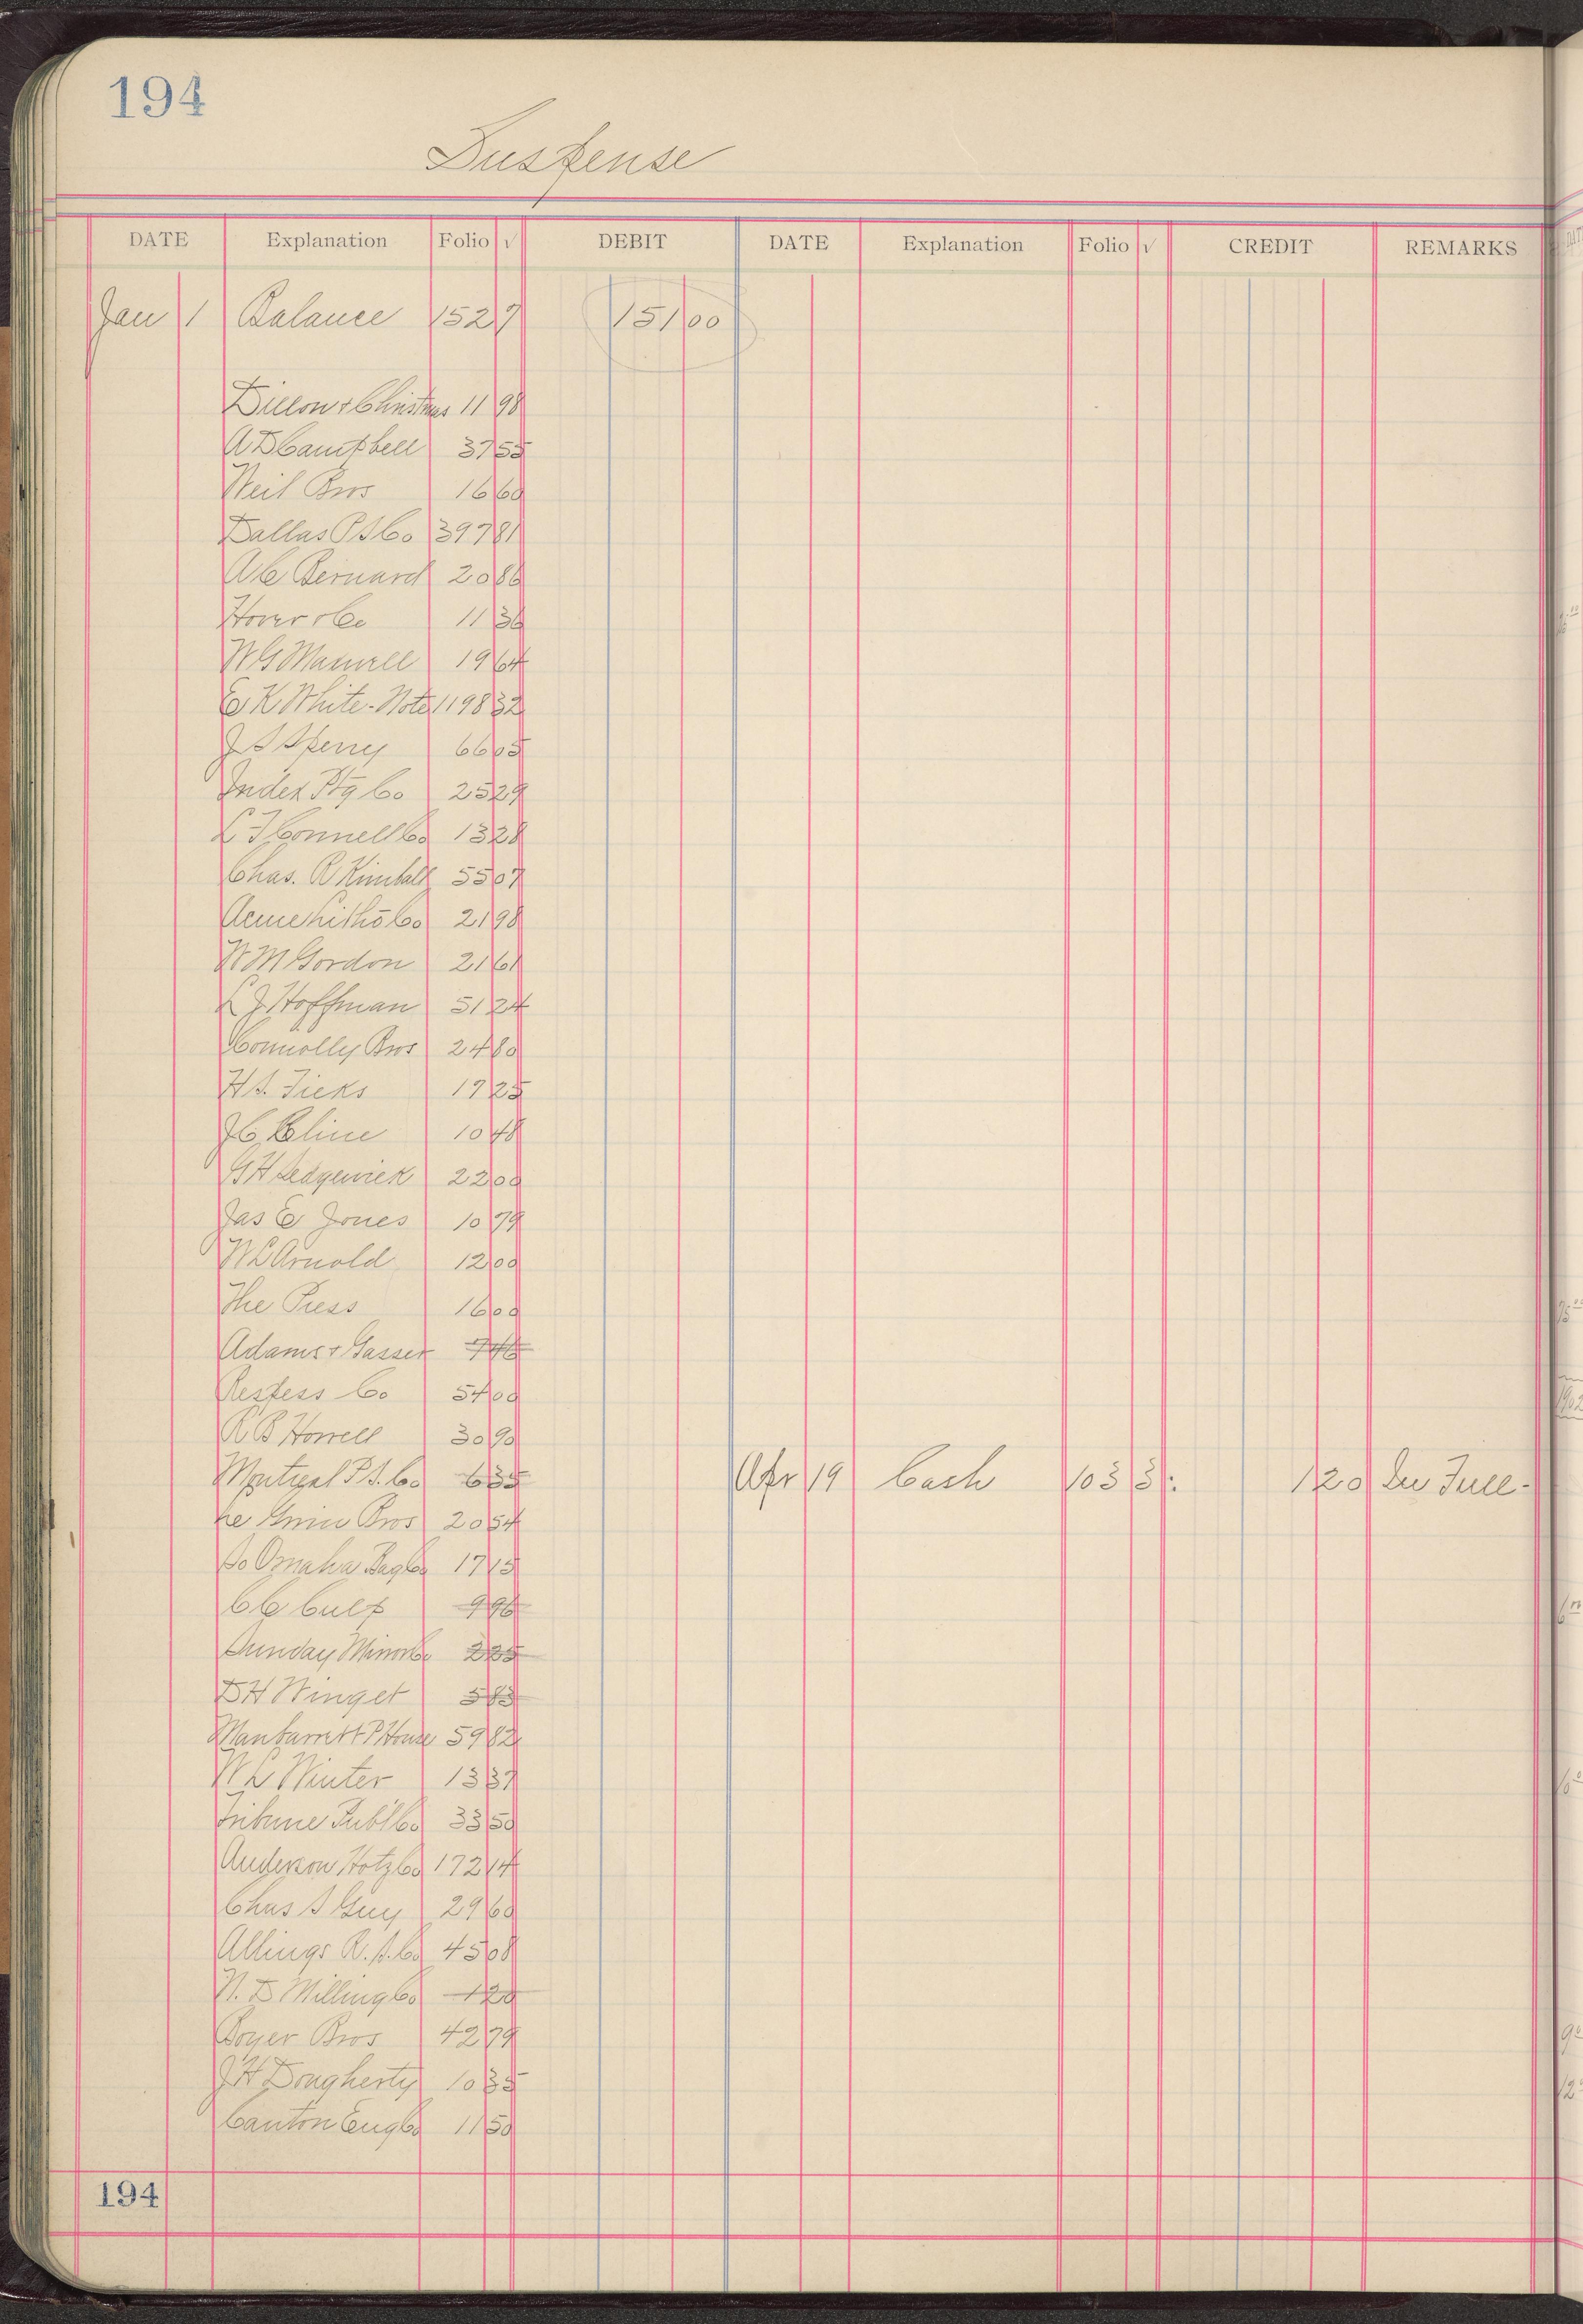 194
Suspense
DATE Explanation Folio √ DEBIT DATE Explanation Folio √ CREDIT REMARKS
Jan 1 Balance 1527 151 00
Dillon & Christmas 11 98
A D Campbell 37 55
Weil Bros 16 60
Dallas P S Co 397 81
A C Bernard 20 86
Hover & Co 11 36
W G Maxwell 19 64
E K White - Note 1198 32
J S Sperry 66 05
Index Ptg Co 25 29
L F Connell Co 13 28
Chas. R Kimball 55 07
Acme Litho Co 21 98
W M Gordon 21 61
L J Hoffman 51 24
Connolly Bros 24 80
H S. Ficks 17 25
J C Cline 10 48
G H Sedgewick 22 00
Jas E Jones 10 79
W L Arnold 12 00
The Press 16 00
Adams & Gasser 7 46
Respess Co 54 00
R B Howell 30 90
Montreal P. S. Co 6 35 Apr 19 Cash 103 3 1 20 In Full -
Bros 20 54
So Omaha Co 17 15
C C Culp 9 96
Sunday Mirror Co 2 25
D H Winget 5 83
P House 59 82
W L Winter 13 37
Tribune Publ Co 33 50
Anderson Hotz Co 172 14
Chas S Guy 29 60
Allings R. S. Co 45 08
N. D Milling Co 1 20
Boyer Bros 42 79
J H Dougherty 10 35
Canton Eng Co 11 50
194